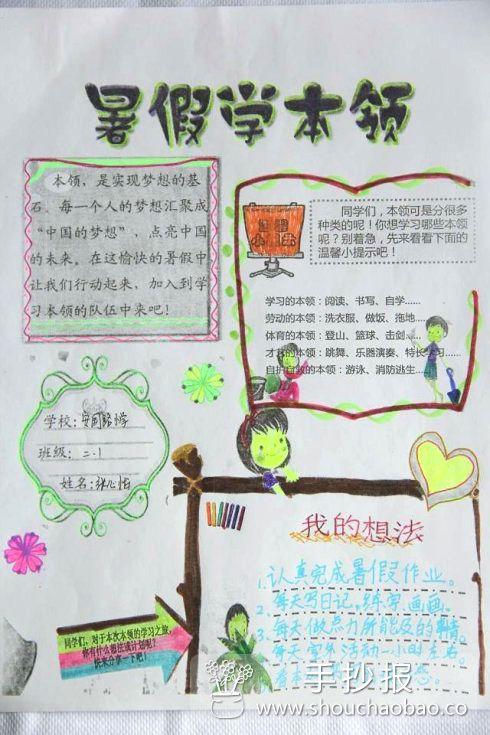 暑假学本领
本领，是实现梦想的基
石。每一个人的梦想汇聚成
“中国的梦想”，点亮中国
的未来。在这愉快的暑假中
让我们行动起来，加入到学
习本领的队伍中来吧！
同学们，本领可是分很多
种类的呢！你想学习哪些本领
呢？别着急，先来看看下面的
温馨小提示吧！
学习的本领：阅读、书写、自学……
劳动的本领：洗衣服、做饭、拖地……
体育的本领：登山、篮球、击剑……
才艺的本领：跳舞、乐器演奏、特长学习……
自护自救的本领：游泳、消防逃生……
学校：
班级：二.1
姓名：
我的想法
1.认真完成暑假作业。
2.每天写日记，练字，画画。
3.每天做点力所能及的事情。
每天室外活动一小时左右
同学们，对于本次本领的学习之旅，
你有什么想法或计划呢？
快来分享一下吧！
手抄报
www.shouchaobao.co